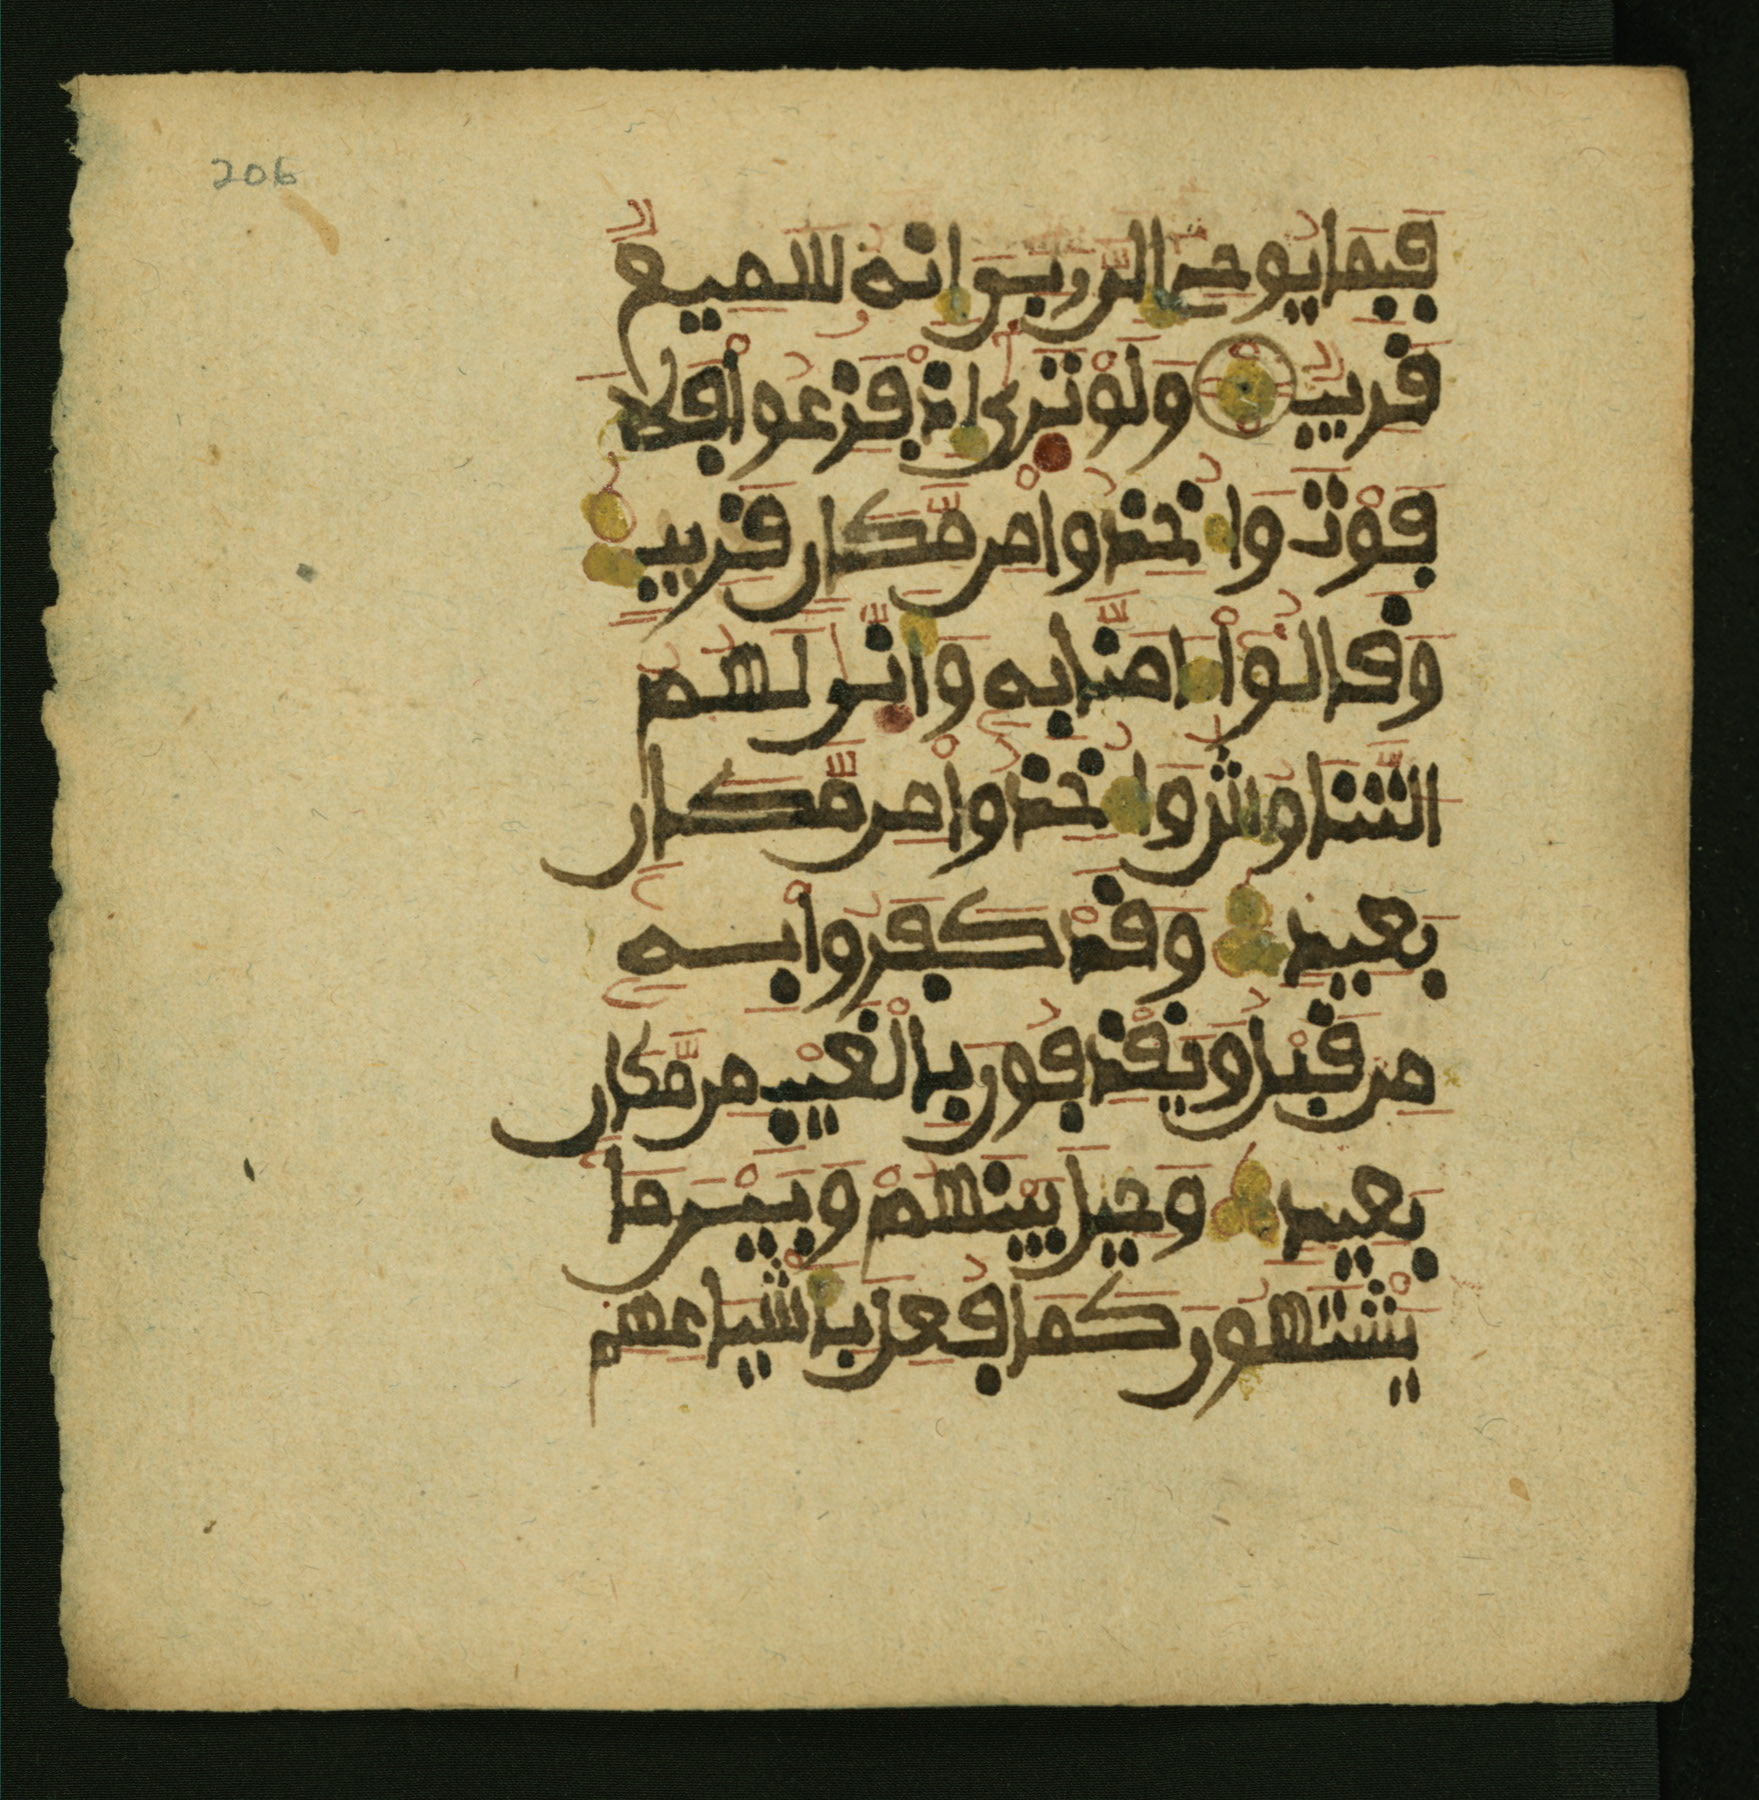 206
فبما يوحي إلي ربي إنه سميع
قريب ولو ترى إذ فزعوا فلا
فوت وأخذوا من مكان قريب
وقالوا ءامنا به وأنى لهم
التناوش وأخذوا من مكان
بعيد وقد كفروا به
من قبل ويقذفون بالغيب من مكان
بعيد وحيل بينهم وبين ما
يشتهون كما فعل بأشياعهم